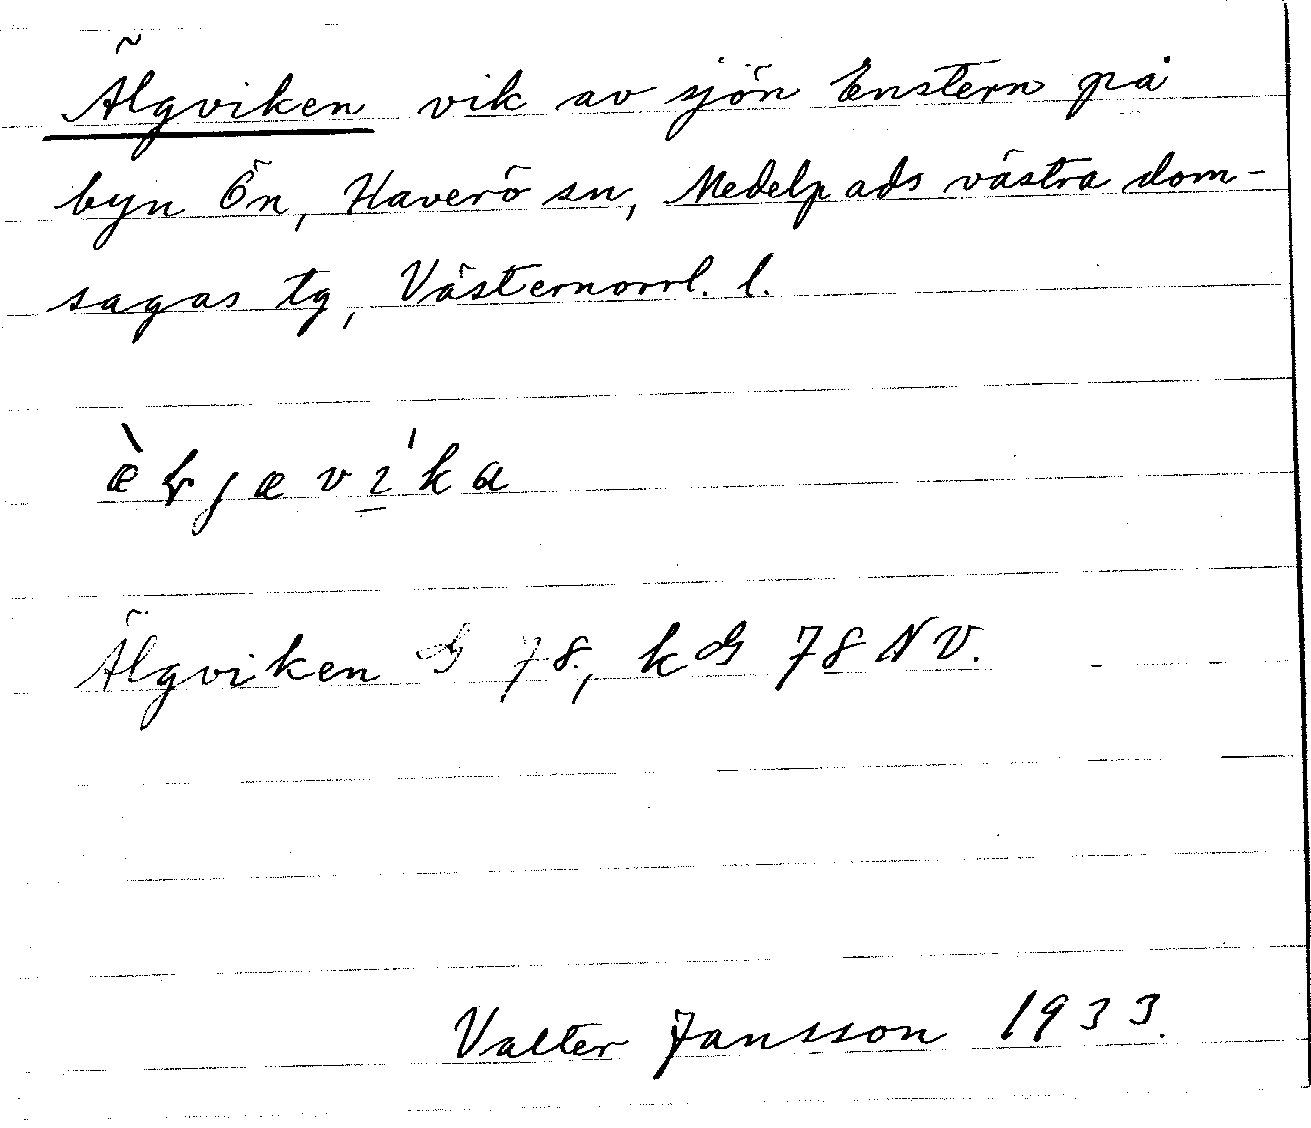 Älgviken vik av sjön Enstern på
byn Ön, Haverö sn, Medelpads västra dom-
sagas tg, Västernorrl. l.
Älgviken G 78, k G 78 NV.
Valter Jansson 1933.